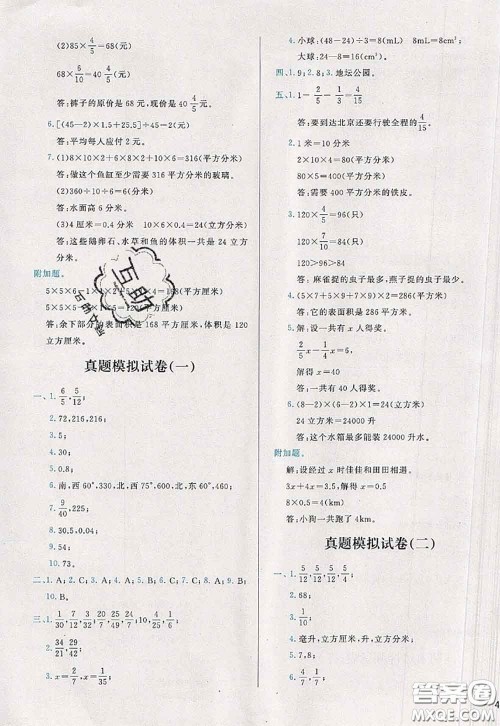 (2)85×4/5=68(元)
68×6/10=40 4/5(元)
答:裤子的原价是 68 元,现价 40 4/5 元。
6.[(45—2)×1.5+25.5]÷45=2(元)
答:平均每人应付 2 元。
7.(1)8×10×2+6×8×2+6×10=316(平方分米)
答:做这个鱼缸至少需要 316 平方分米的玻璃。
(2)360÷10÷6=6(分米)
答:水面高 6 分米。
(3)4 厘米=0.4 分米 10×6×0.4=24(立方分米)
答:这些鹅卵石、水草和鱼的体积一共是 24 立方分米。
附加题。
答:余下部分的表面积是 168 平方厘米,体积是 120
立方厘米。
真题模拟试卷(一)
一、1. 6/5, 5/12;
2. 72,216,55;
3. 10;
4. 30;
5. 0.8;
6. 南,西 60°,330,北,东 75°,600,北,西 60°,320;
7. 9/40,225;
8. 30.5,0.04;
9. 10;
10. 73。
二、1. A; 2. C; 3. B; 4. C; 5. A; 6. B; 7. A; 8. A; 9. C; 10. B。
三、1. 1/30, 3/10, 20/7, 25/24, 24/49, 1/20, 29/30, 1/7;
2. 34/21, 29/51;
3. x=4/7, x=1/15。
4. 小球:(48—24)÷3=8(mL) 8mL=8cm³
大球:24—8=16(cm³)
四、1. 9; 2. 8; 3. 地坛公园。
五、1. 1—2/5—1/3=4/15
答:要到达北京还要行驶全程的 4/15。
2. 1 米=10 分米
2×10×4=80(平方分米)
80×5=400(平方分米)
答:需要 400 平方分米的铁皮。
3. 120×4/5=96(只)
120×7/10=84(只)
120>96>84
答:麻雀捉的虫子最多,燕子捉的虫子最少。
4.(5×7+5×9+7×9)×2=286(平方分米)
答:它的表面积是 286 平方分米。
5. 解:设一共有 x 人得奖。
2/5x—1/4x=6,
解得 x=40
答:一共有 40 人得奖。
6.(8—2)×(6—2)×1=24(立方分米)
24 立方分米=24000 毫升
答:这个水箱最多能装 24000 毫升水。
附加题。
解:设经过 x 时佳佳和田田相遇。
3x+4x=3.5,
8×0.5=4(km)
答:小狗一共跑了 4km。
真题模拟试卷(二)
一、1. 5/12, 5/12, 4/7;
2. 5/18;
3. 5;
4. 毫升,立方厘米,升,立方分米;
互助
答案圈
MXQE.COM